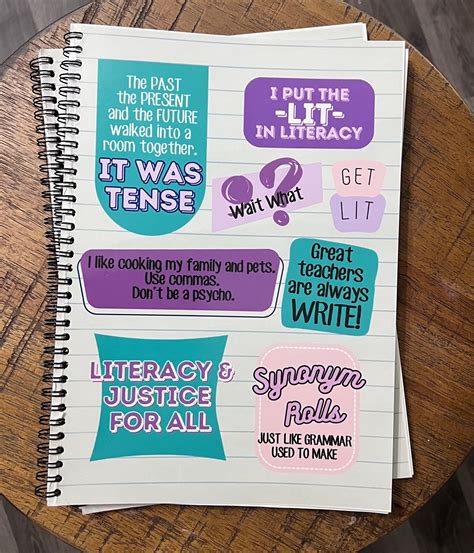 The PAST
the PRESENT
and the FUTURE
walked into a
room together.
IT WAS
TENSE
I PUT THE
-LIT-
IN LITERACY
Wait What
?
GET
LIT
I like cooking my family and pets.
Use commas.
Don't be a psycho.
Great
teachers
are always
WRITE!
LITERACY &
JUSTICE
FOR ALL
Synonym
Rolls
JUST LIKE GRAMMAR
USED TO MAKE